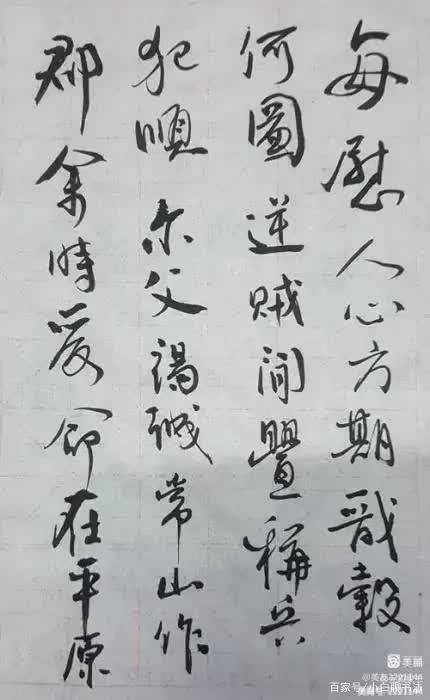 每慰人心方期戬穀
何圖逆賊閒舋稱兵
犯順尔父竭誠常山作
郡余時受命在平原
美篇
百家号/小白聊书法